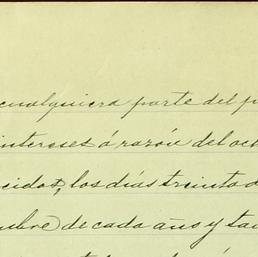 cualquiera parte del p
intereses á razón del oc
cidos, los días treinta
mbre de cada año y ta